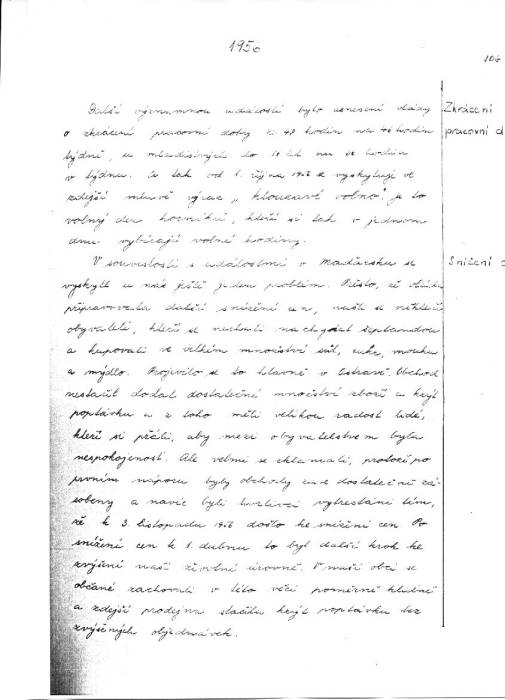 1956
106
Další významnou událostí bylo usnesení vlády
o zkrácení pracovní doby z 48 hodin na 46 hodin
týdně, u mladistvých do 16 let na 36 hodin
v týdnu. A tak od 1. října 1956 se vyskytuje ve
zdejší mluvě výraz "klouzavé volno". Je to
volný den horníků, kteří si tak v jednom
dnu vybírají volné hodiny.
Zkrácení
pracovní d
V souvislosti s událostmi v Maďarsku se
vyskytl u nás ještě jeden problém. Přesto, že vláda
připravovala další snížení cen, našli se někteří
obyvatelé, kteří se nechali nachytat šeptandou
a kupovali ve velkém množství sůl, cukr, mouku
a mýdlo. Projevilo se to hlavně v Ostravě. Obchod
nestačil dodat dostatečné množství zboží a krýt
poptávku a z toho měli velikou radost lidé,
kteří si přáli, aby mezi obyvatelstvem byla
nespokojenost. Ale velmi se zklamali, protože po
prvním náporu byly obchody zase dostatečně zá-
sobeny a navíc byli vytrestáni tím,
že k 3. listopadu 1956 došlo ke snížení cen. Po
snížení cen k 1. dubnu to byl další krok ke
zvýšení naší životní úrovně. V naší obci se
občané zachovali v této věci poměrně klidně
a zdejší prodejna stačila krýt poptávku bez
zvýšených objednávek.
Snížení c